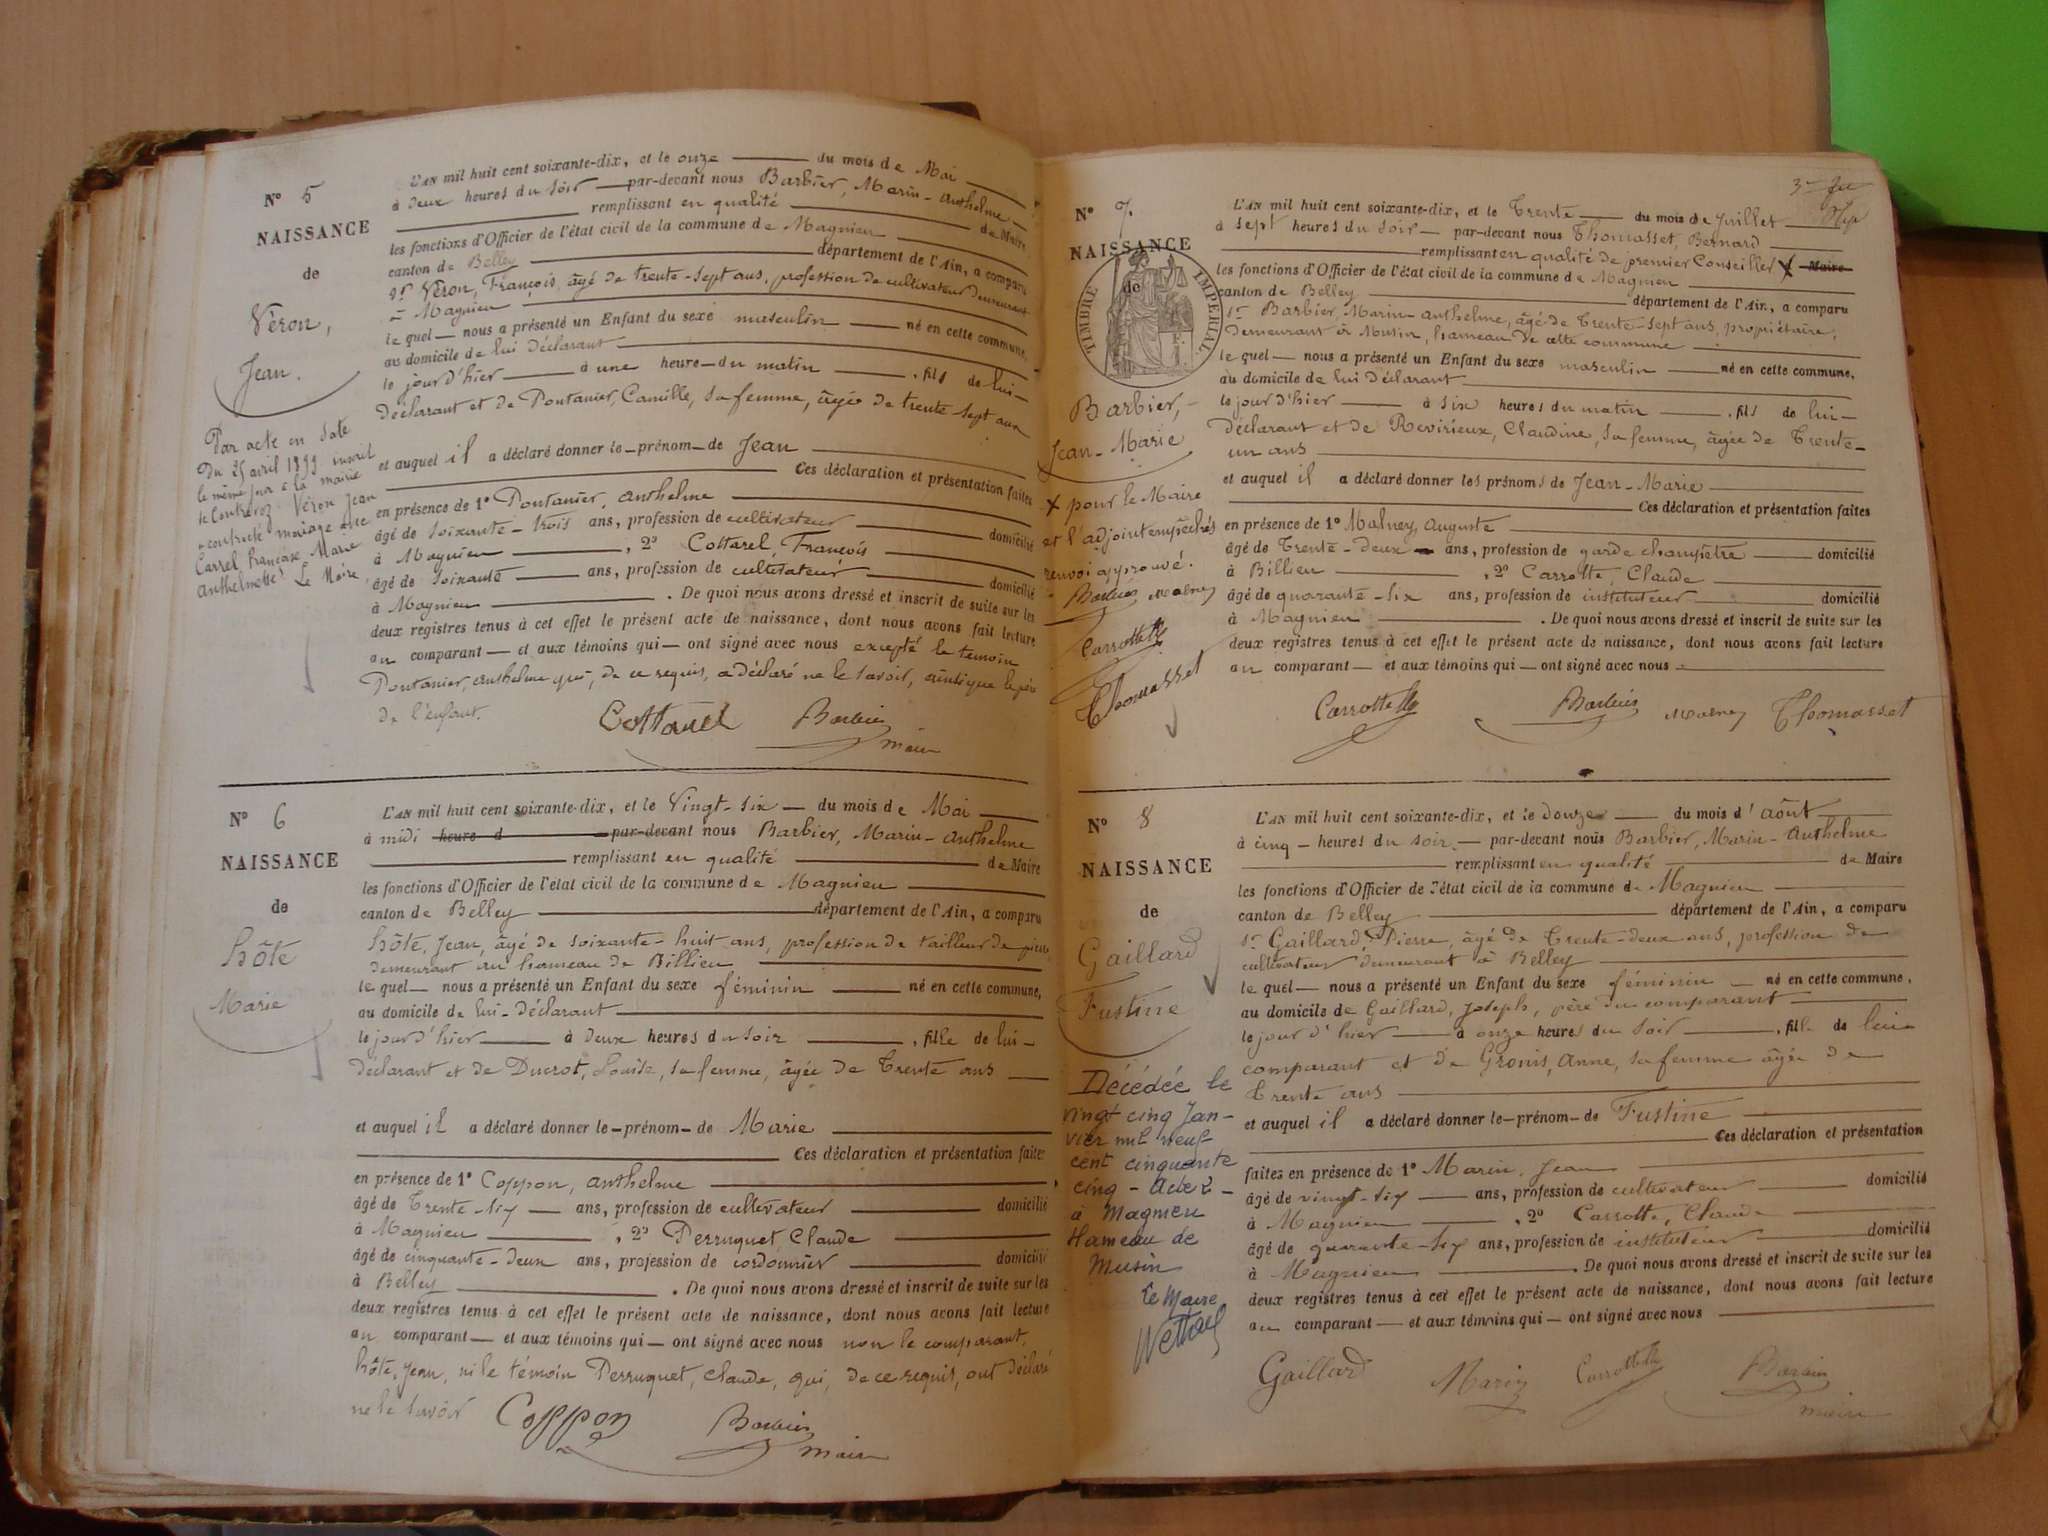 Nº 5
NAISSANCE
de
Véron,
Jean.
Par acte en date
du 25 avril 1899 inscrit
le même jour à la mairie
de Contrevoz Véron Jean
a contracté mariage avec
Carrel françoise Marie
Anthelmette. Le Maire
L'AN mil huit cent soixante-dix, et le onze du mois de Mai
à deux heures du soir par-devant nous Barbier, Marin-Anthelme
remplissant en qualité de Maire
les fonctions d'Officier de l'état civil de la commune de Magnieu
canton de Belley département de l'Ain, a comparu
sr Véron, François, âgé de trente-sept ans, profession de cultivateur demeurant
à Magnieu
le quel nous a présenté un Enfant du sexe masculin né en cette commune,
au domicile de lui déclarant
le jour d'hier à une heure du matin , fils de lui-
déclarant et de Pontanier, Camille, sa femme, âgée de trente-sept ans
et auquel il a déclaré donner le prénom de Jean
Ces déclaration et présentation faites
en présence de 1º Pontanier, Anthelme
âgé de soixante-trois ans, profession de cultivateur domicilié
à Magnieu , 2º Cottarel, François
âgé de soixante ans, profession de cultivateur domicilié
à Magnieu . De quoi nous avons dressé et inscrit de suite sur les
deux registres tenus à cet effet le présent acte de naissance, dont nous avons fait lecture
au comparant et aux témoins qui ont signé avec nous excepté le témoin
Pontanier, Anthelme qui, de ce requis, a déclaré ne le savoir, ainsi que le père
de l'enfant.
Cottarel Barbier
maire
Nº 6
NAISSANCE
de
hôte
Marie
L'AN mil huit cent soixante-dix, et le Vingt-six du mois de Mai
à midi heure d par-devant nous Barbier, Marin-Anthelme
remplissant en qualité de Maire
les fonctions d'Officier de l'état civil de la commune de Magnieu
canton de Belley département de l'Ain, a comparu
hôte, Jean, âgé de soixante-huit ans, profession de tailleur de pierre
demeurant au hameau de Billieu
le quel nous a présenté un Enfant du sexe féminin né en cette commune,
au domicile de lui-déclarant
le jour d'hier à deux heures du soir , fille de lui-
déclarant et de Ducrot, Louise, sa femme, âgée de Trente ans
et auquel il a déclaré donner le prénom de Marie
Ces déclaration et présentation faites
en présence de 1º Coppon, Anthelme
âgé de Trente-six ans, profession de cultivateur domicilié
à Magnieu , 2º Perruquet Claude
âgé de cinquante-deux ans, profession de cordonnier domicilié
à Belley . De quoi nous avons dressé et inscrit de suite sur les
deux registres tenus à cet effet le présent acte de naissance, dont nous avons fait lecture
au comparant et aux témoins qui ont signé avec nous non le comparant
hôte, Jean, ni le témoin Perruquet, Claude, qui, de ce requis, ont déclaré
ne le savoir Coppon Barbier
maire
Nº 7.
NAISSANCE
de
TIMBRE IMPÉRIAL
Barbier,
Jean-Marie
X pour le Maire
et l'adjoint empêchés
renvoi approuvé.
Barbier Malney
Carrotte
Thomasset
L'AN mil huit cent soixante-dix, et le Trente du mois de Juillet
à sept heures du soir par-devant nous Thomasset, Bernard
remplissant en qualité de premier Conseiller X Maire
les fonctions d'Officier de l'état civil de la commune de Magnieu
canton de Belley département de l'Ain, a comparu
sr Barbier, Marin-Anthelme, âgé de Trente-sept ans, propriétaire,
demeurant à Musin, hameau de cette commune
le quel nous a présenté un Enfant du sexe masculin né en cette commune,
au domicile de lui déclarant
le jour d'hier à six heures du matin , fils de lui-
déclarant et de Revirieux, Claudine, sa femme, âgée de Trente-
un ans
et auquel il a déclaré donner les prénoms de Jean-Marie
Ces déclaration et présentation faites
en présence de 1º Malney, Auguste
âgé de Trente-deux ans, profession de garde champêtre domicilié
à Billieu , 2º Carrotte, Claude
âgé de quarante-six ans, profession de instituteur domicilié
à Magnieu . De quoi nous avons dressé et inscrit de suite sur les
deux registres tenus à cet effet le présent acte de naissance, dont nous avons fait lecture
au comparant et aux témoins qui ont signé avec nous
Carrotte Barbier Malney Thomasset
Nº 8
NAISSANCE
de
Gaillard
Fustine
Décédée le
vingt cinq Jan-
vier mil neuf
cent cinquante
cinq - Acte 2 -
à Magnieu
Hameau de
Musin
Le Maire
L'AN mil huit cent soixante-dix, et le douze du mois d'Août
à cinq heures du soir par-devant nous Barbier, Marin-Anthelme
remplissant en qualité de Maire
les fonctions d'Officier de l'état civil de la commune de Magnieu
canton de Belley département de l'Ain, a comparu
sr Gaillard, Pierre, âgé de Trente-deux ans, profession de
cultivateur demeurant à Belley
le quel nous a présenté un Enfant du sexe féminin né en cette commune,
au domicile de Gaillard, Joseph, père du comparant
le jour d'hier à onze heures du soir , fille de lui
comparant et de Gronis, Anne, sa femme âgée de
Trente ans
et auquel il a déclaré donner le prénom de Fustine
Ces déclaration et présentation
faites en présence de 1º Marin, Jean
âgé de vingt-six ans, profession de cultivateur domicilié
à Magnieu , 2º Carrotte, Claude
âgé de quarante-six ans, profession de instituteur domicilié
à Magnieu . De quoi nous avons dressé et inscrit de suite sur les
deux registres tenus à cet effet le présent acte de naissance, dont nous avons fait lecture
au comparant et aux témoins qui ont signé avec nous
Gaillard Marin Carrotte Barbier
maire